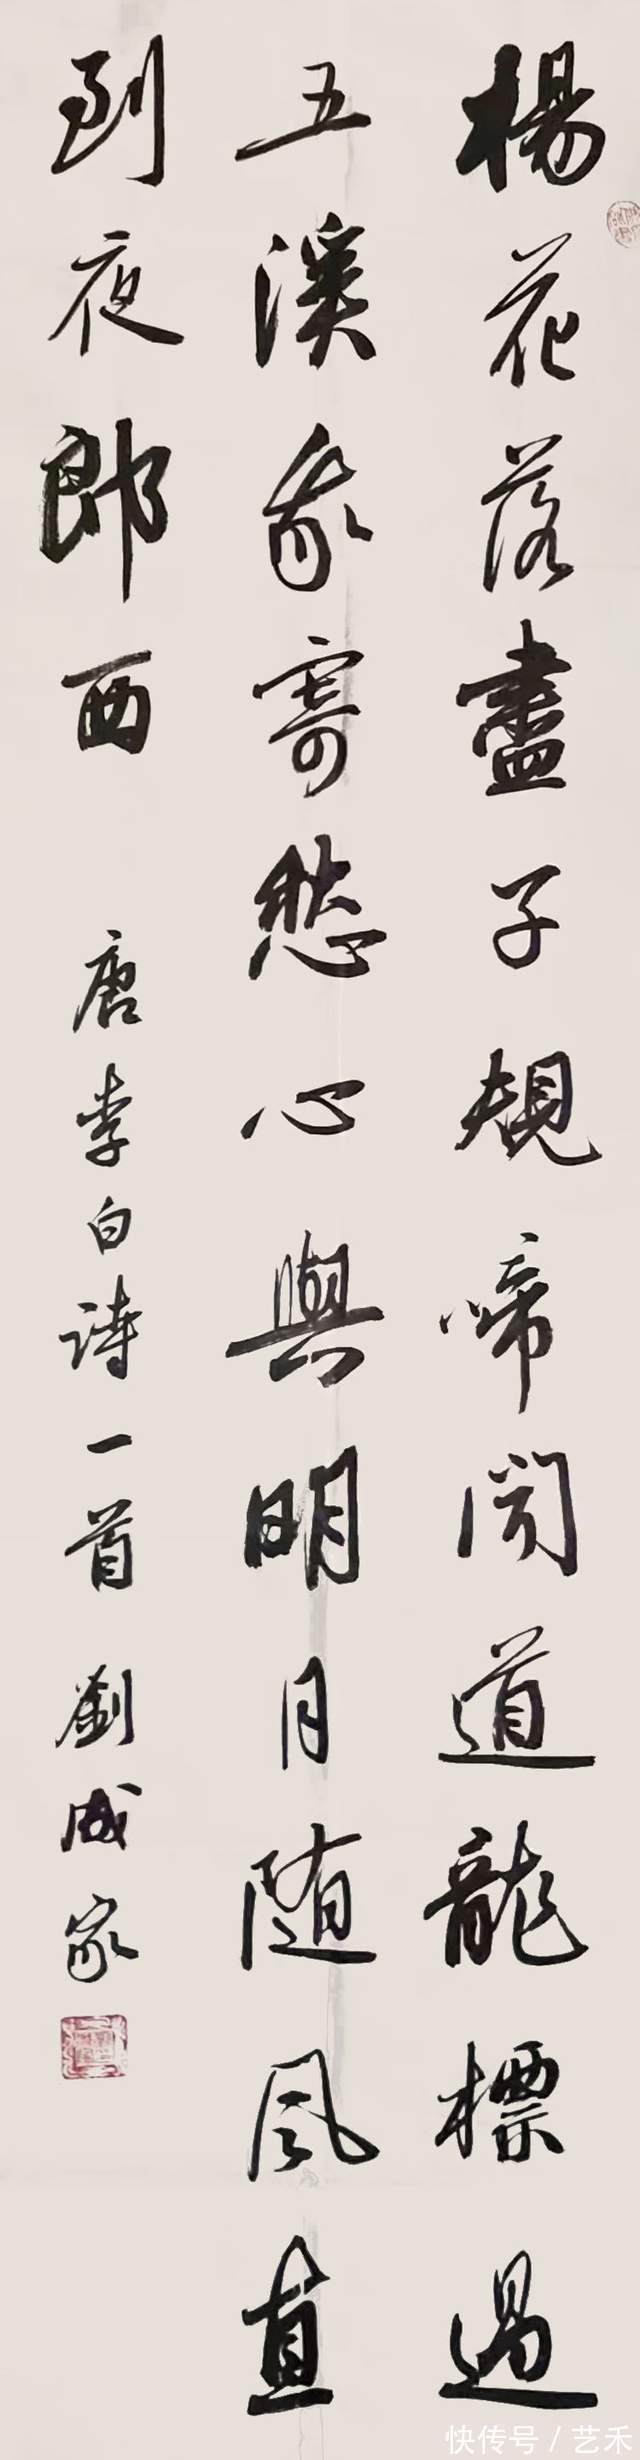 楊花落盡子規啼聞道龍標過
五溪我寄愁心與明月随風直
到夜郎西
唐李白诗一首 劉成家
快传号/艺禾